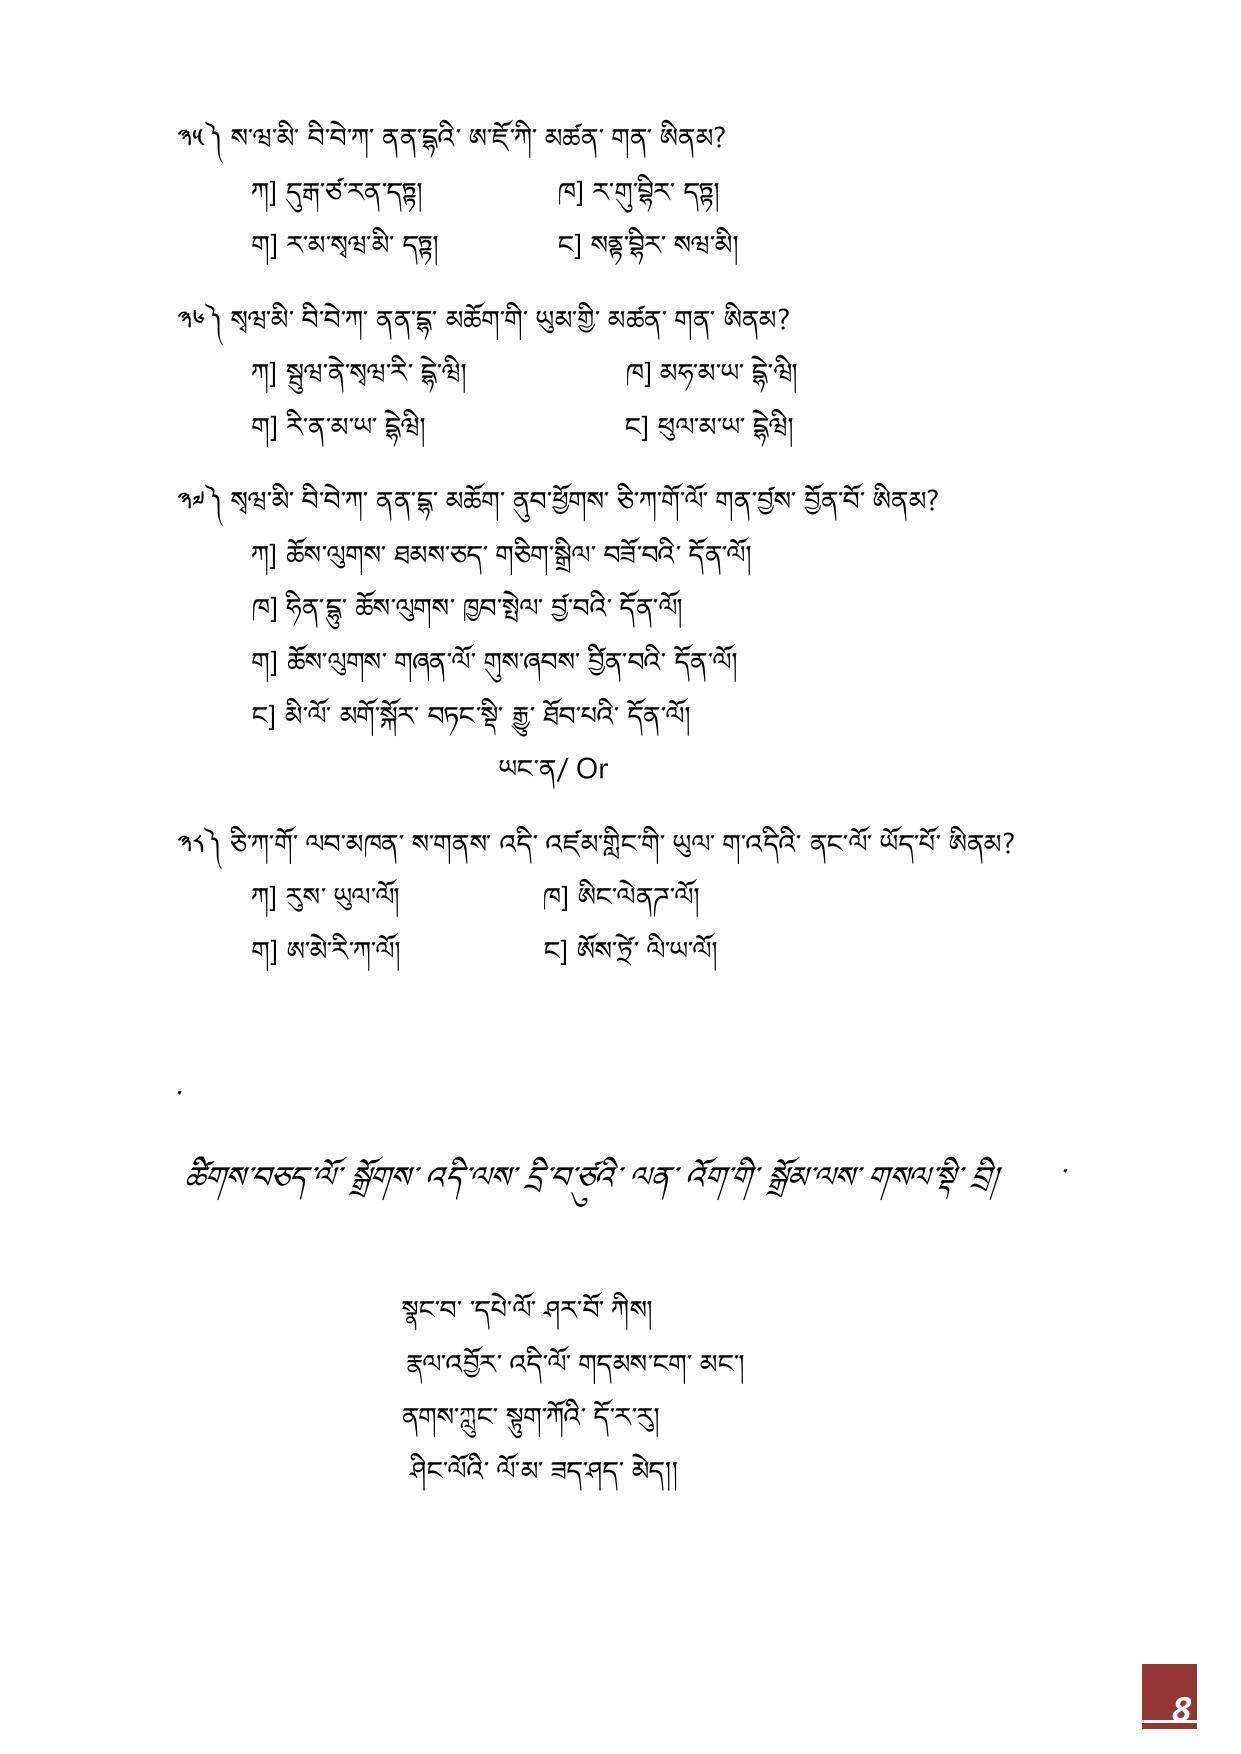 ༣༥༽ ས་ཝ་མི་ བི་བེ་ཀ་ ནན་དྷའི་ ཨ་ཇོ་ཀི་ མཚན་ གན་ ཨིནམ?
ཀ] དུརྒ་ཙ་རན་དཏྟ། ཁ] ར་གུ་བྷིར་ དཏྟ།
ག] ར་མ་སྭཝ་མི་ དཏྟ། ང] སནྟ་བྷིར་ སཝ་མི།
༣༦༽ སྭཝ་མི་ བི་བེ་ཀ་ ནན་དྷ་ མཆོག་གི་ ཡུམ་གྱི་ མཚན་ གན་ ཨིནམ?
ཀ] སྦུཝ་ནེ་སྭཝ་རི་ དྷེ་ཝི། ཁ] མཧ་མ་ཡ་ དྷེ་ཝི།
ག] རི་ན་མ་ཡ་ དྷེཝི། ང] ཕུལ་མ་ཡ་ དྷེཝི།
༣༧༽ སྭཝ་མི་ བི་བེ་ཀ་ ནན་དྷ་ མཆོག་ ནུབ་ཕྱོགས་ ཅི་ཀ་གོ་ལོ་ གན་བྱས་ བྱོན་བོ་ ཨིནམ?
ཀ] ཆོས་ལུགས་ ཐམས་ཅད་ གཅིག་སྒྲིལ་ བཟོ་བའི་ དོན་ལོ།
ཁ] ཧིན་དྷུ་ ཆོས་ལུགས་ ཁྱབ་སྤེལ་ བྱ་བའི་ དོན་ལོ།
ག] ཆོས་ལུགས་ གཞན་ལོ་ གུས་ཞབས་ བྱིན་བའི་ དོན་ལོ།
ང] མི་ལོ་ མགོ་སྐོར་ བཏང་སྡི་ རྒྱུ་ ཐོབ་པའི་ དོན་ལོ།
ཡང་ན/ Or
༣༨༽ ཅི་ཀ་གོ་ ལབ་མཁན་ ས་གནས་ འདི་ འཛམ་གླིང་གི་ ཡུལ་ ག་འདིའི་ ནང་ལོ་ ཡོད་པོ་ ཨིནམ?
ཀ] རུས་ ཡུལ་ལོ། ཁ] ཨིང་ལེནཌ་ལོ།
ག] ཨ་མེ་རི་ཀ་ལོ། ང] ཨོས་ཊྲེ་ ལི་ཡ་ལོ།
ཚིགས་བཅད་ལོ་ སྒྲོགས་ འདི་ལས་ དྲི་བ་ཙུའི་ ལན་ འོག་གི་ སྒྲོམ་ལས་ གསལ་སྡི་ བྲི།
སྣང་བ་ དཔེ་ལོ་ ཤར་བོ་ ཀིས།
རྣལ་འབྱོར་ འདི་ལོ་ གདམས་ངག་ མང་།
ནགས་ཀླུང་ སྟུག་ཀོའི་ དོ་ར་རུ།
ཤིང་ལོའི་ ལོ་མ་ ཟད་ཤད་ མེད།།
8